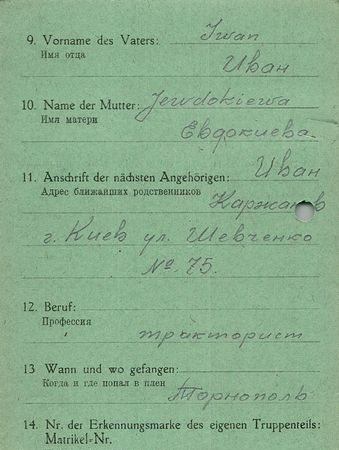 9. Vorname des Vaters: Iwan
Имя отца
Иван
10. Name der Mutter: Jewdokiewa
Имя матери
Евдокиева
11. Anschrift der nächsten Angehörigen: Иван
Адрес ближайших родственников
г. Киев ул. Шевченко
№ 75.
12. Beruf:
Профессия
тракторист
13 Wann und wo gefangen:
Когда и где попал в плен
Тарнополь
14. Nr. der Erkennungsmarke des eigenen Truppenteils:
Matrikel-Nr.